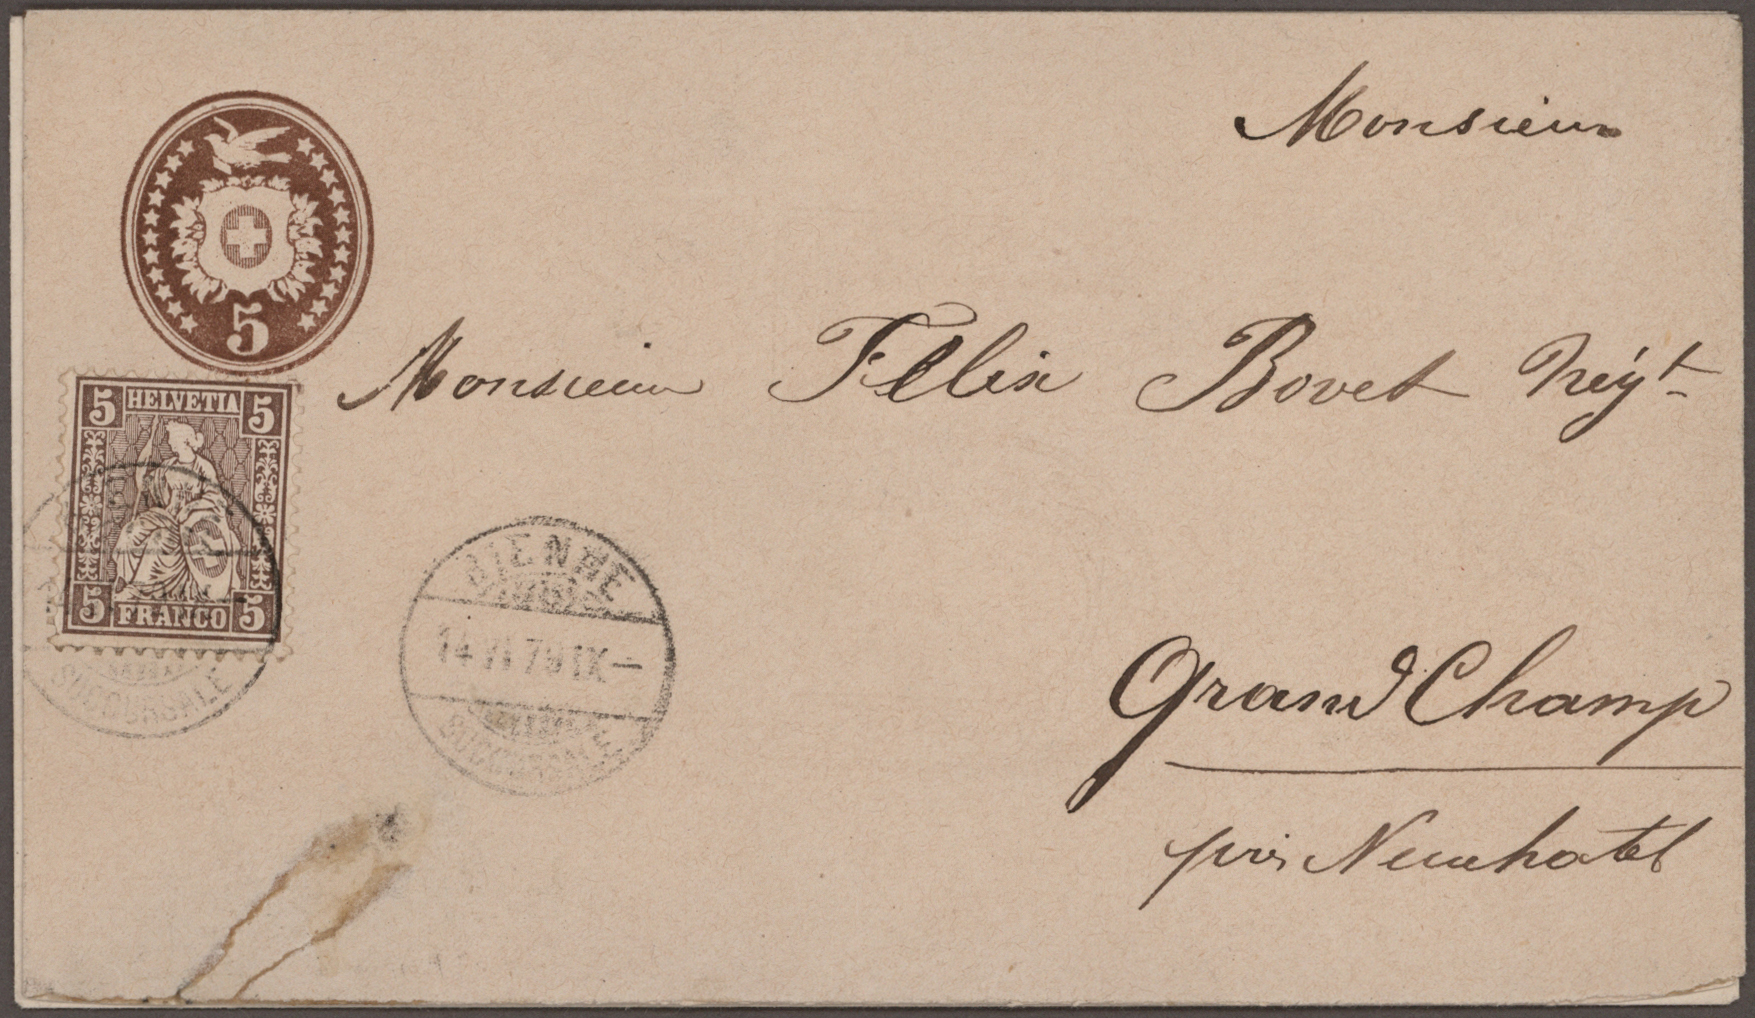 Monsieur
5
Monsieur Felix Bovet Négt
5 HELVETIA 5
5 FRANCO 5
BIENNE
14 VI 79 IX—
SUCCURSALE
SUCCURSALE
Grand Champ
près Neuchatel